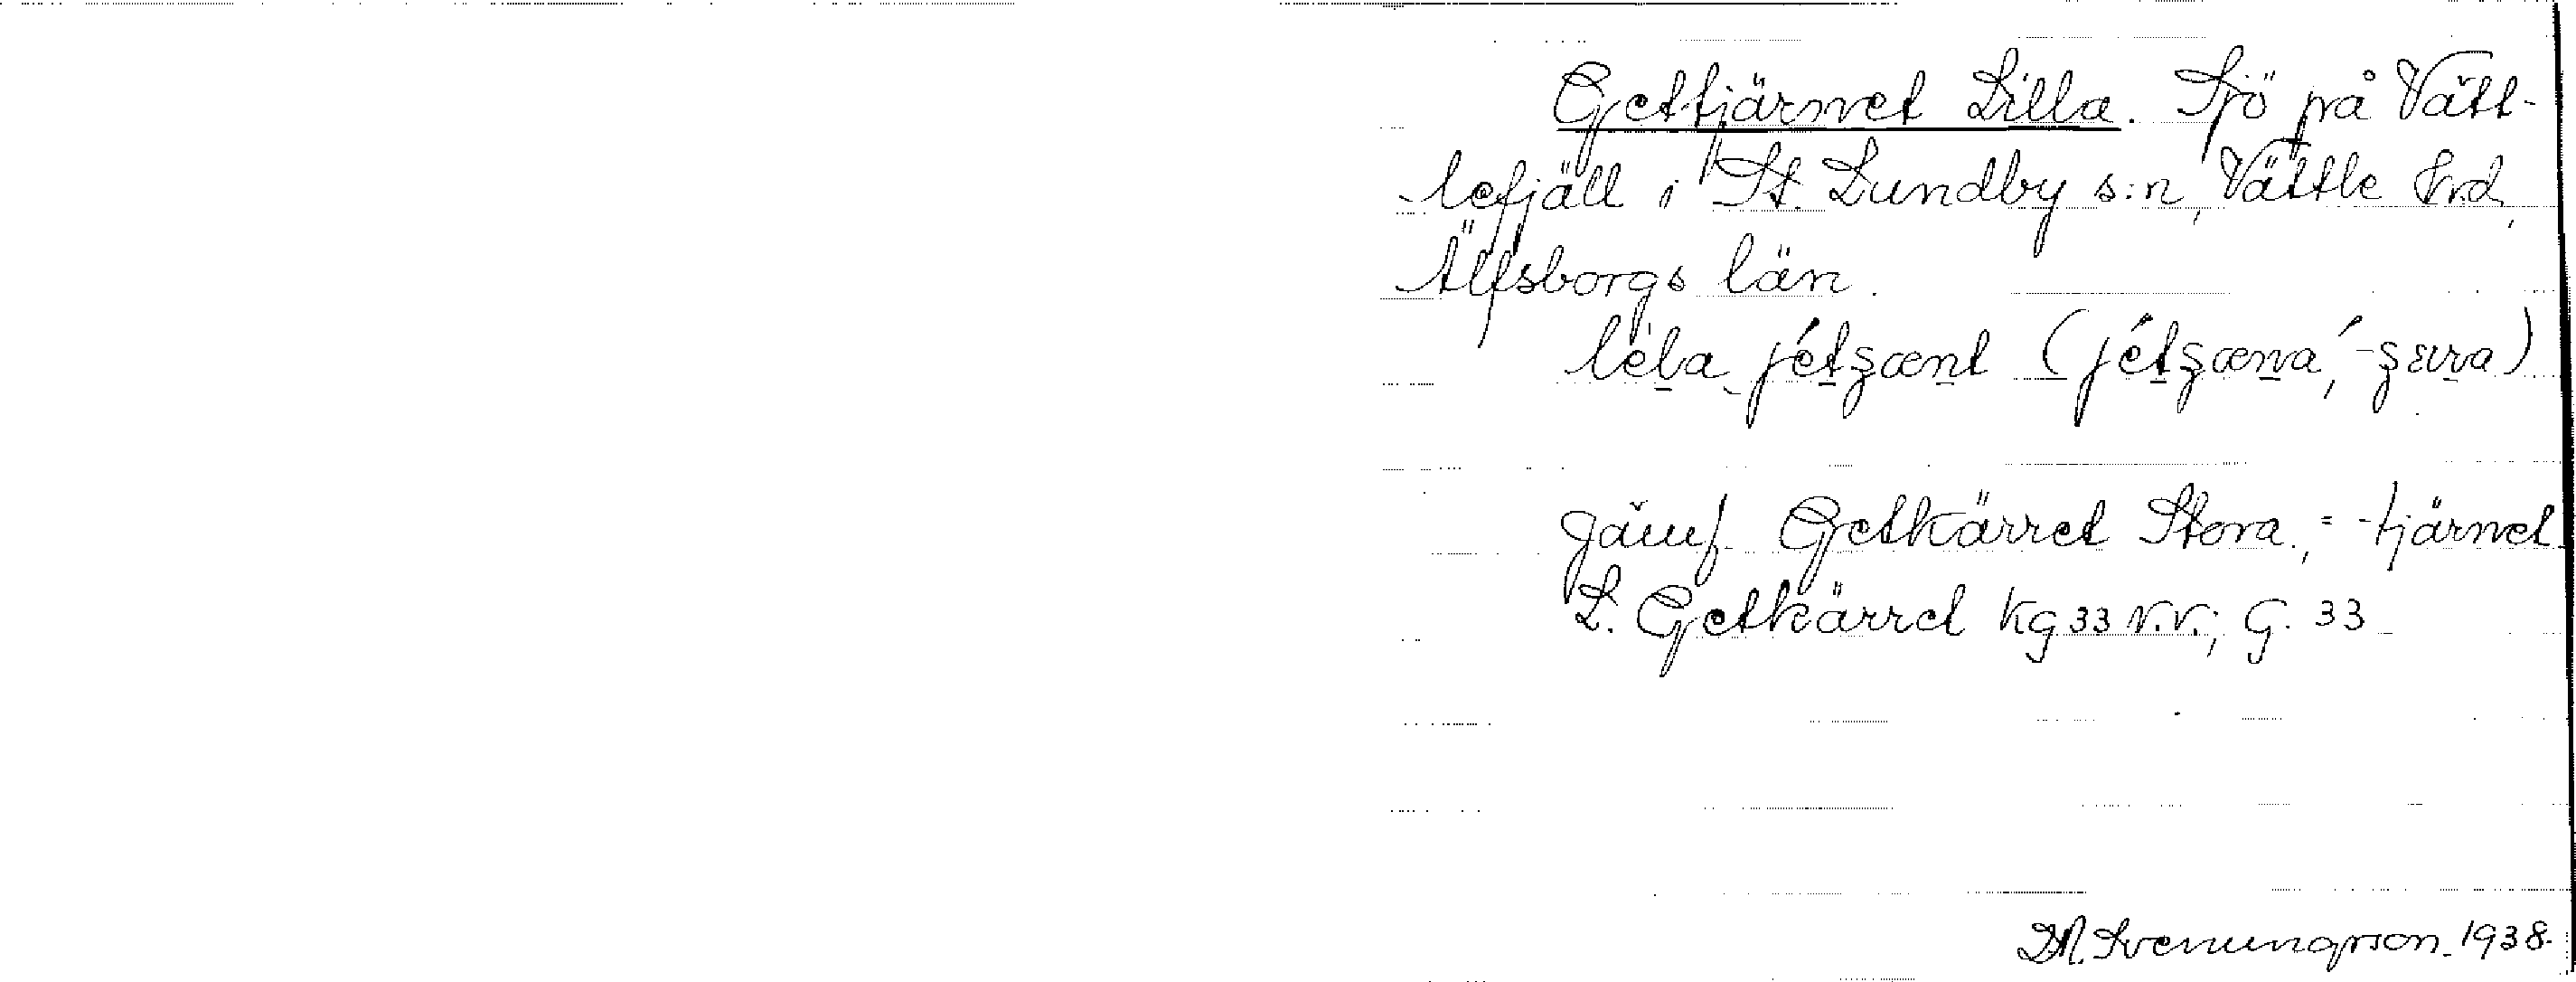 Gettjärnet Lilla. Sjö på Vätt-
lefjäll i St. Lundby s:n, Vättle hd,
Älfsborgs län.
léla jétʂænt (jétʂæna, -ʂæra)
Jämf. Getkärret Stora, = -tjärnet
L. Getkärret Kg 33 N.V.; G. 33
M. Svenungsson 1938